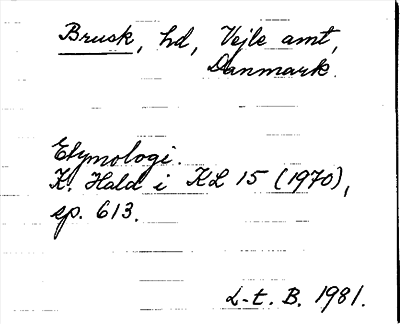 Brusk, hd, Vejle amt,
Danmark.
Etymologi.
K. Hald i KL 15 (1970),
sp. 613.
L-t. B. 1981.